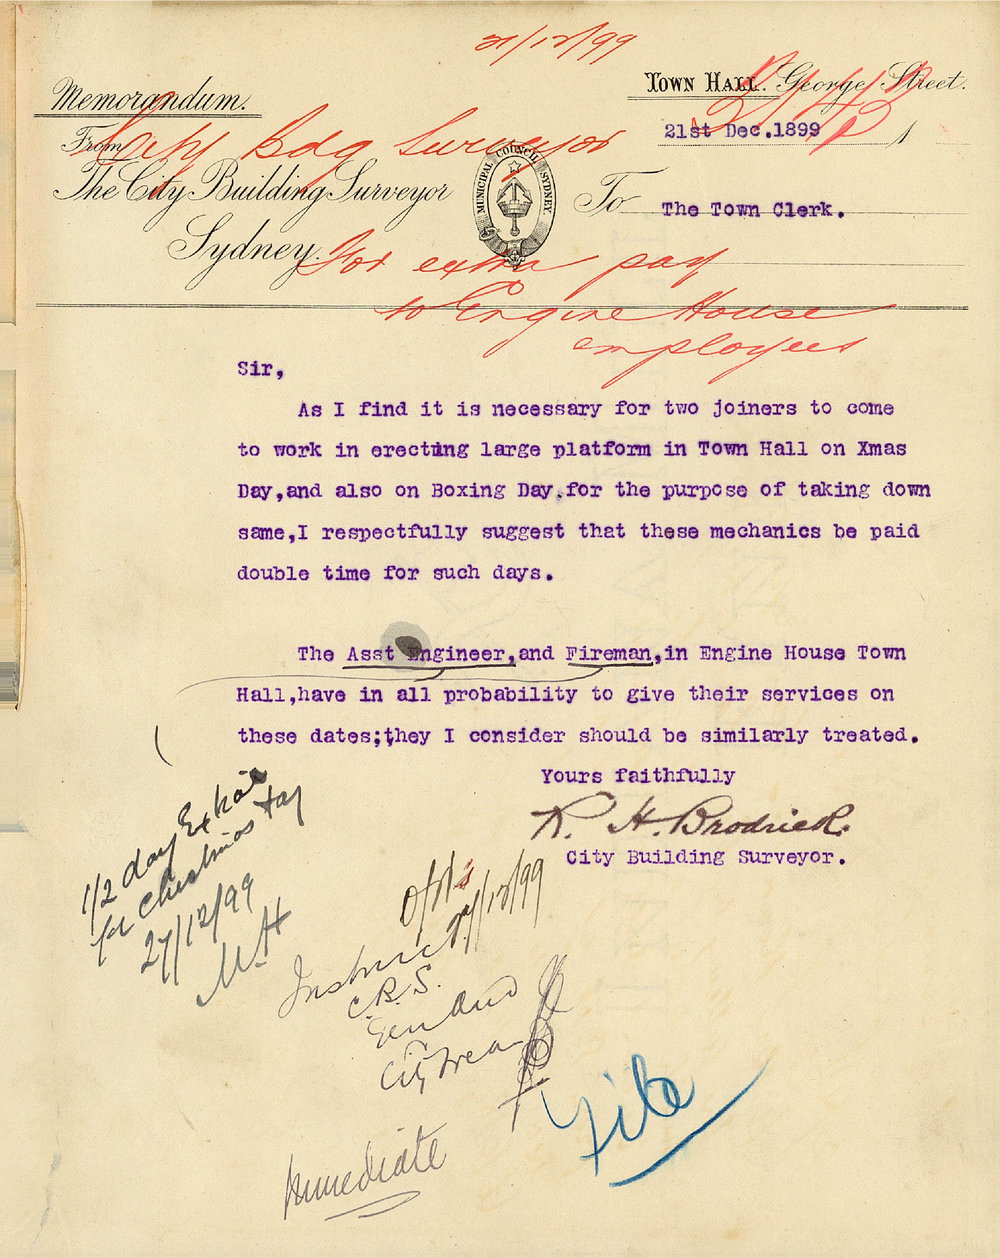 21/12/99
Memorandum.
Town Hall. George Street.
21st Dec.1899
From
City Bdg Surveyor
The City Building Surveyor
Sydney.
MUNICIPAL COUNCIL SYDNEY.
To The Town Clerk.
For extra pay
to Engine House
employees
Sir,
As I find it is necessary for two joiners to come
to work in erecting large platform in Town Hall on Xmas
Day,and also on Boxing Day,for the purpose of taking down
same,I respectfully suggest that these mechanics be paid
double time for such days.
The Asst Engineer,and Fireman,in Engine House Town
Hall,have in all probability to give their services on
these dates;they I consider should be similarly treated.
Yours faithfully
R. H. Brodrick.
City Building Surveyor.
1/2 day Extra
for Christmas Day
27/12/99
27/12/99
Instruct
C.B.S.
and
City
Immediate
File